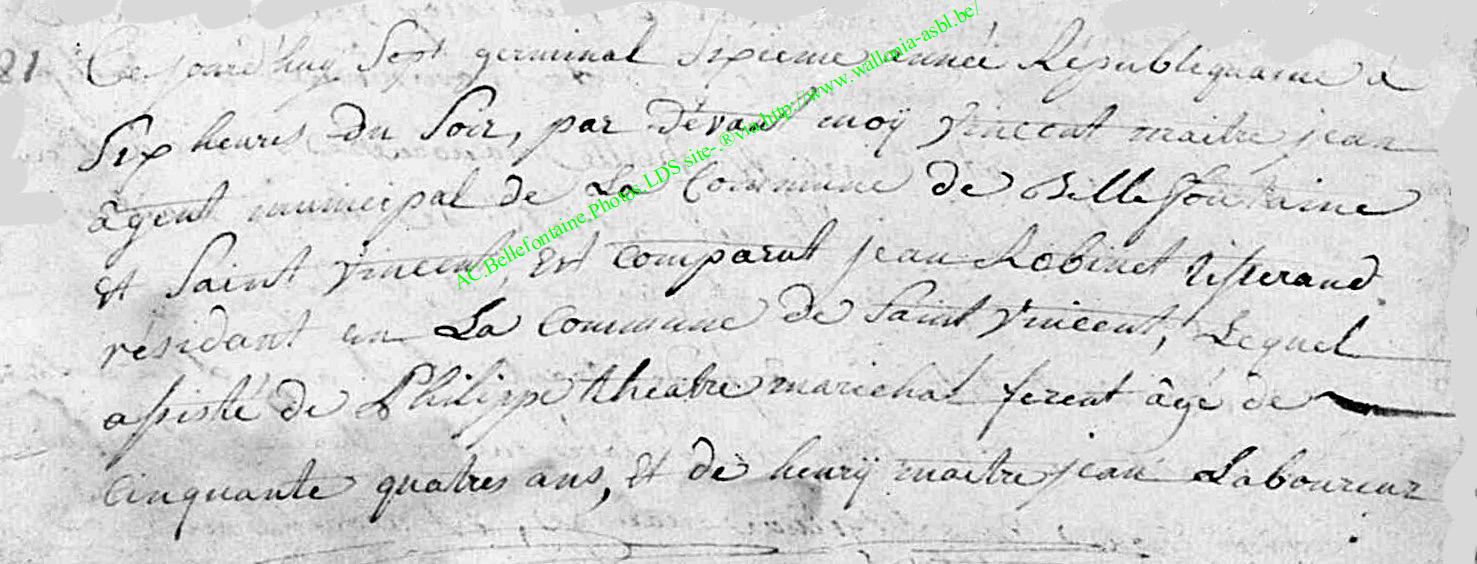 21 Ce jourd'huy Sept germinal Sixieme année Républiquaine à
Six heures du Soir, par dévant moÿ Vincent maitre jean
âgent municipal de La Commune de Bellefontaine
et Saint Vincent, est comparut jean Robinet tisserand
résidant en La Commune de Saint Vincent, Lequel
assisté de Philippe théatre marichal ferent âgé de
cinquante quatres ans, et de henrÿ maitre jean Laboureur
AC.Bellefontaine.Photos.LDS site-.®via:http://www.wallonia-asbl.be/